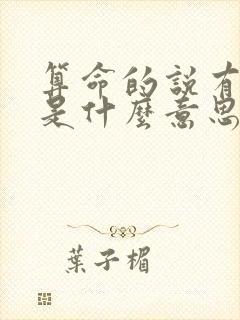 算命的説有
是什麼意思
葉子楣